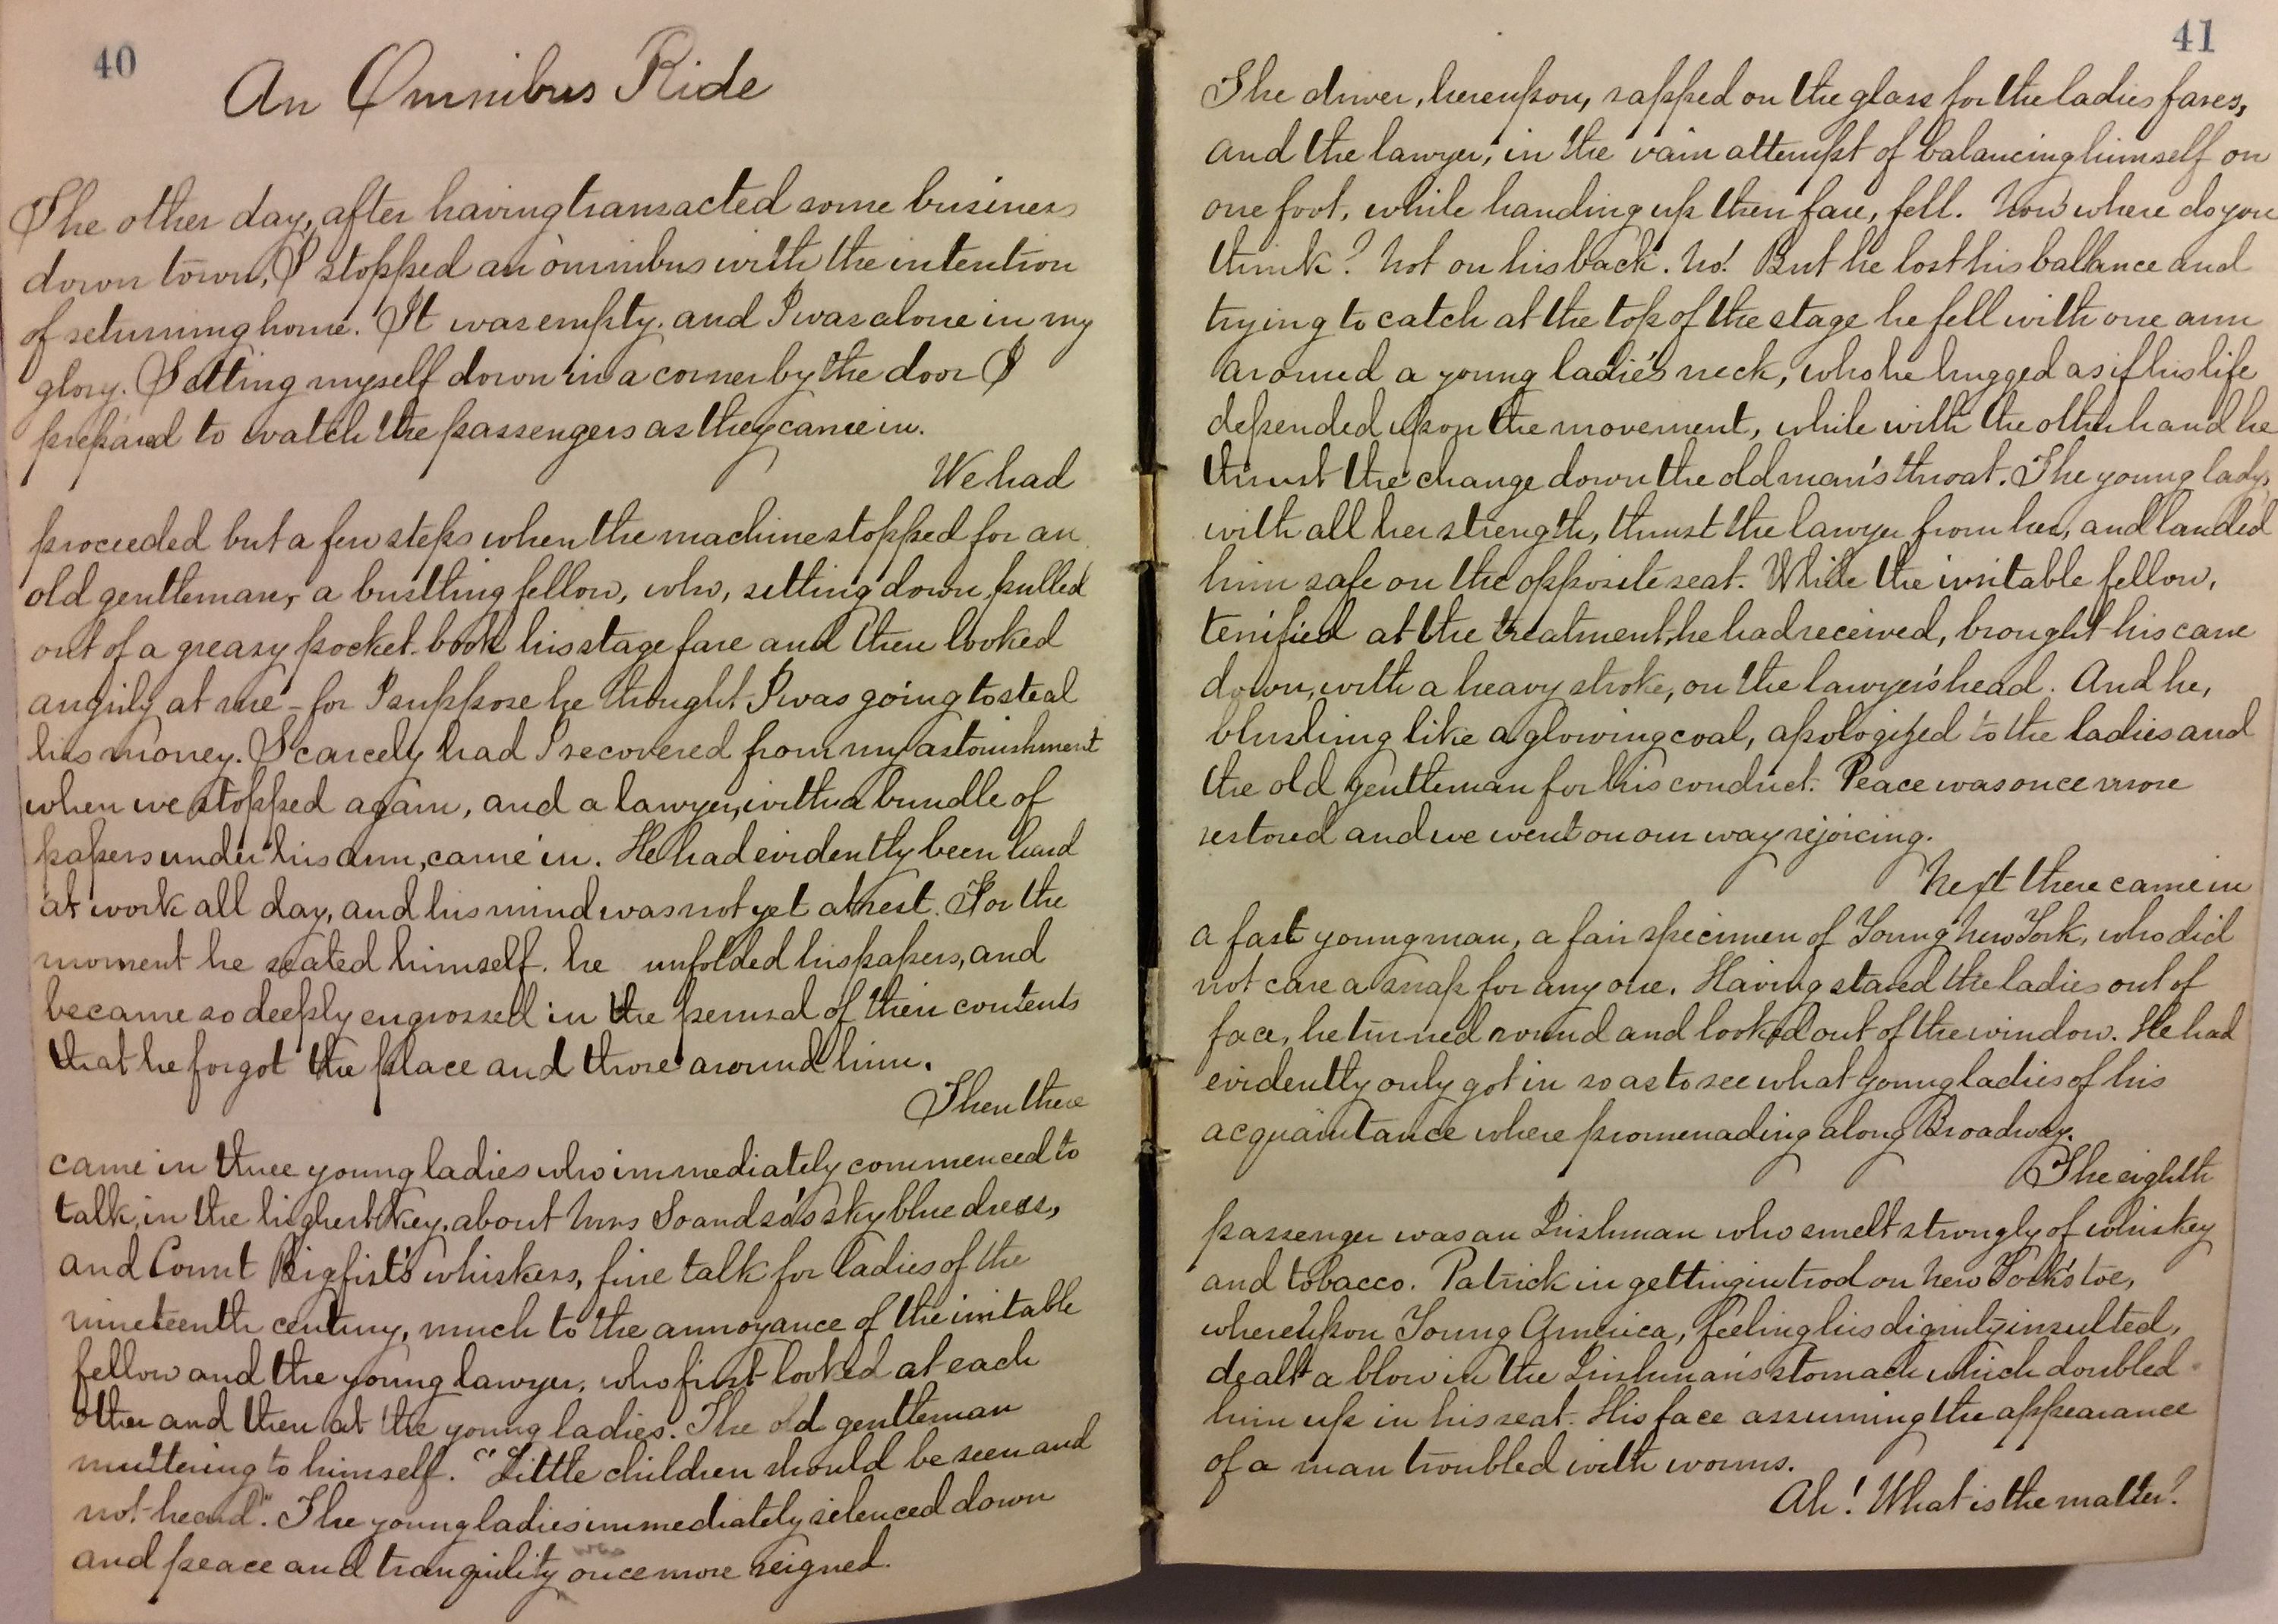 40
An Omnibus Ride
The other day, after having transacted some business
down town, I stopped an omnibus with the intention
of returning home. It was empty. and I was alone in my
glory. Setting myself down in a corner by the door I
prepared to watch the passengers as they came in.
We had
proceeded but a few steps when the machine stopped for an
old gentleman, a bustling fellow, who, setting down, pulled
out of a greasy pocket-book his stage fare and then looked
angrily at me - for I suppose he thought I was going to steal
his money. Scarcely had I recovered from my astonishment
when we stopped again, and a lawyer, with a bundle of
papers under his arm, came in. He had evidently been hard
at work all day, and his mind was not yet at rest. For the
moment he seated himself. he unfolded his papers, and
became so deeply engrossed in the perusal of their contents
that he forgot the place and those around him.
Then there
came in three young ladies who immediately commenced to
talk, in the highest key, about Mrs So and so's sky blue dress,
and Count Bigfist's whiskers, fine talk for ladies of the
nineteenth century, much to the annoyance of the irritable
fellow and the young lawyer, who first looked at each
other and then at the young ladies. The old gentleman
muttering to himself. "Little children should be seen and
not heard". The young ladies immediately silenced down
and peace and tranquility once more reigned.
41
The driver, hereupon, rapped on the glass for the ladies fares,
and the lawyer, in the vain attempt of balancing himself on
one foot, while handing up their fare, fell. Now where do you
think? Not on his back. No! But he lost his ballance and
trying to catch at the top of the stage he fell with one arm
around a young ladie's neck, who he hugged as if his life
depended upon the movement, while with the other hand he
thrust the change down the old man's throat. The young lady,
with all her strength, thrust the lawyer from her, and landed
him safe on the opposite seat. While the irritable fellow,
terrified at the treatment, he had received, brought his cane
down, with a heavy stroke, on the lawyer's head. And he,
blushing like a glowing coal, apologized to the ladies and
the old gentleman for his conduct. Peace was once more
restored and we went on our way rejoicing.
Next there came in
a fast young man, a fair specimen of Young New York, who did
not care a snap for any one. Having stared the ladies out of
face, he turned round and looked out of the window. He had
evidently only got in so as to see what young ladies of his
acquaintance where promenading along Broadway.
The eighth
passenger was an Irishman who smelt strongly of whiskey
and tobacco. Patrick in getting in trod on New York's toe,
whereupon Young America, feeling his dignity insulted,
dealt a blow in the Irishman's stomach which doubled
him up in his seat. His face assuming the appearance
of a man troubled with worms.
Ah! What is the matter?